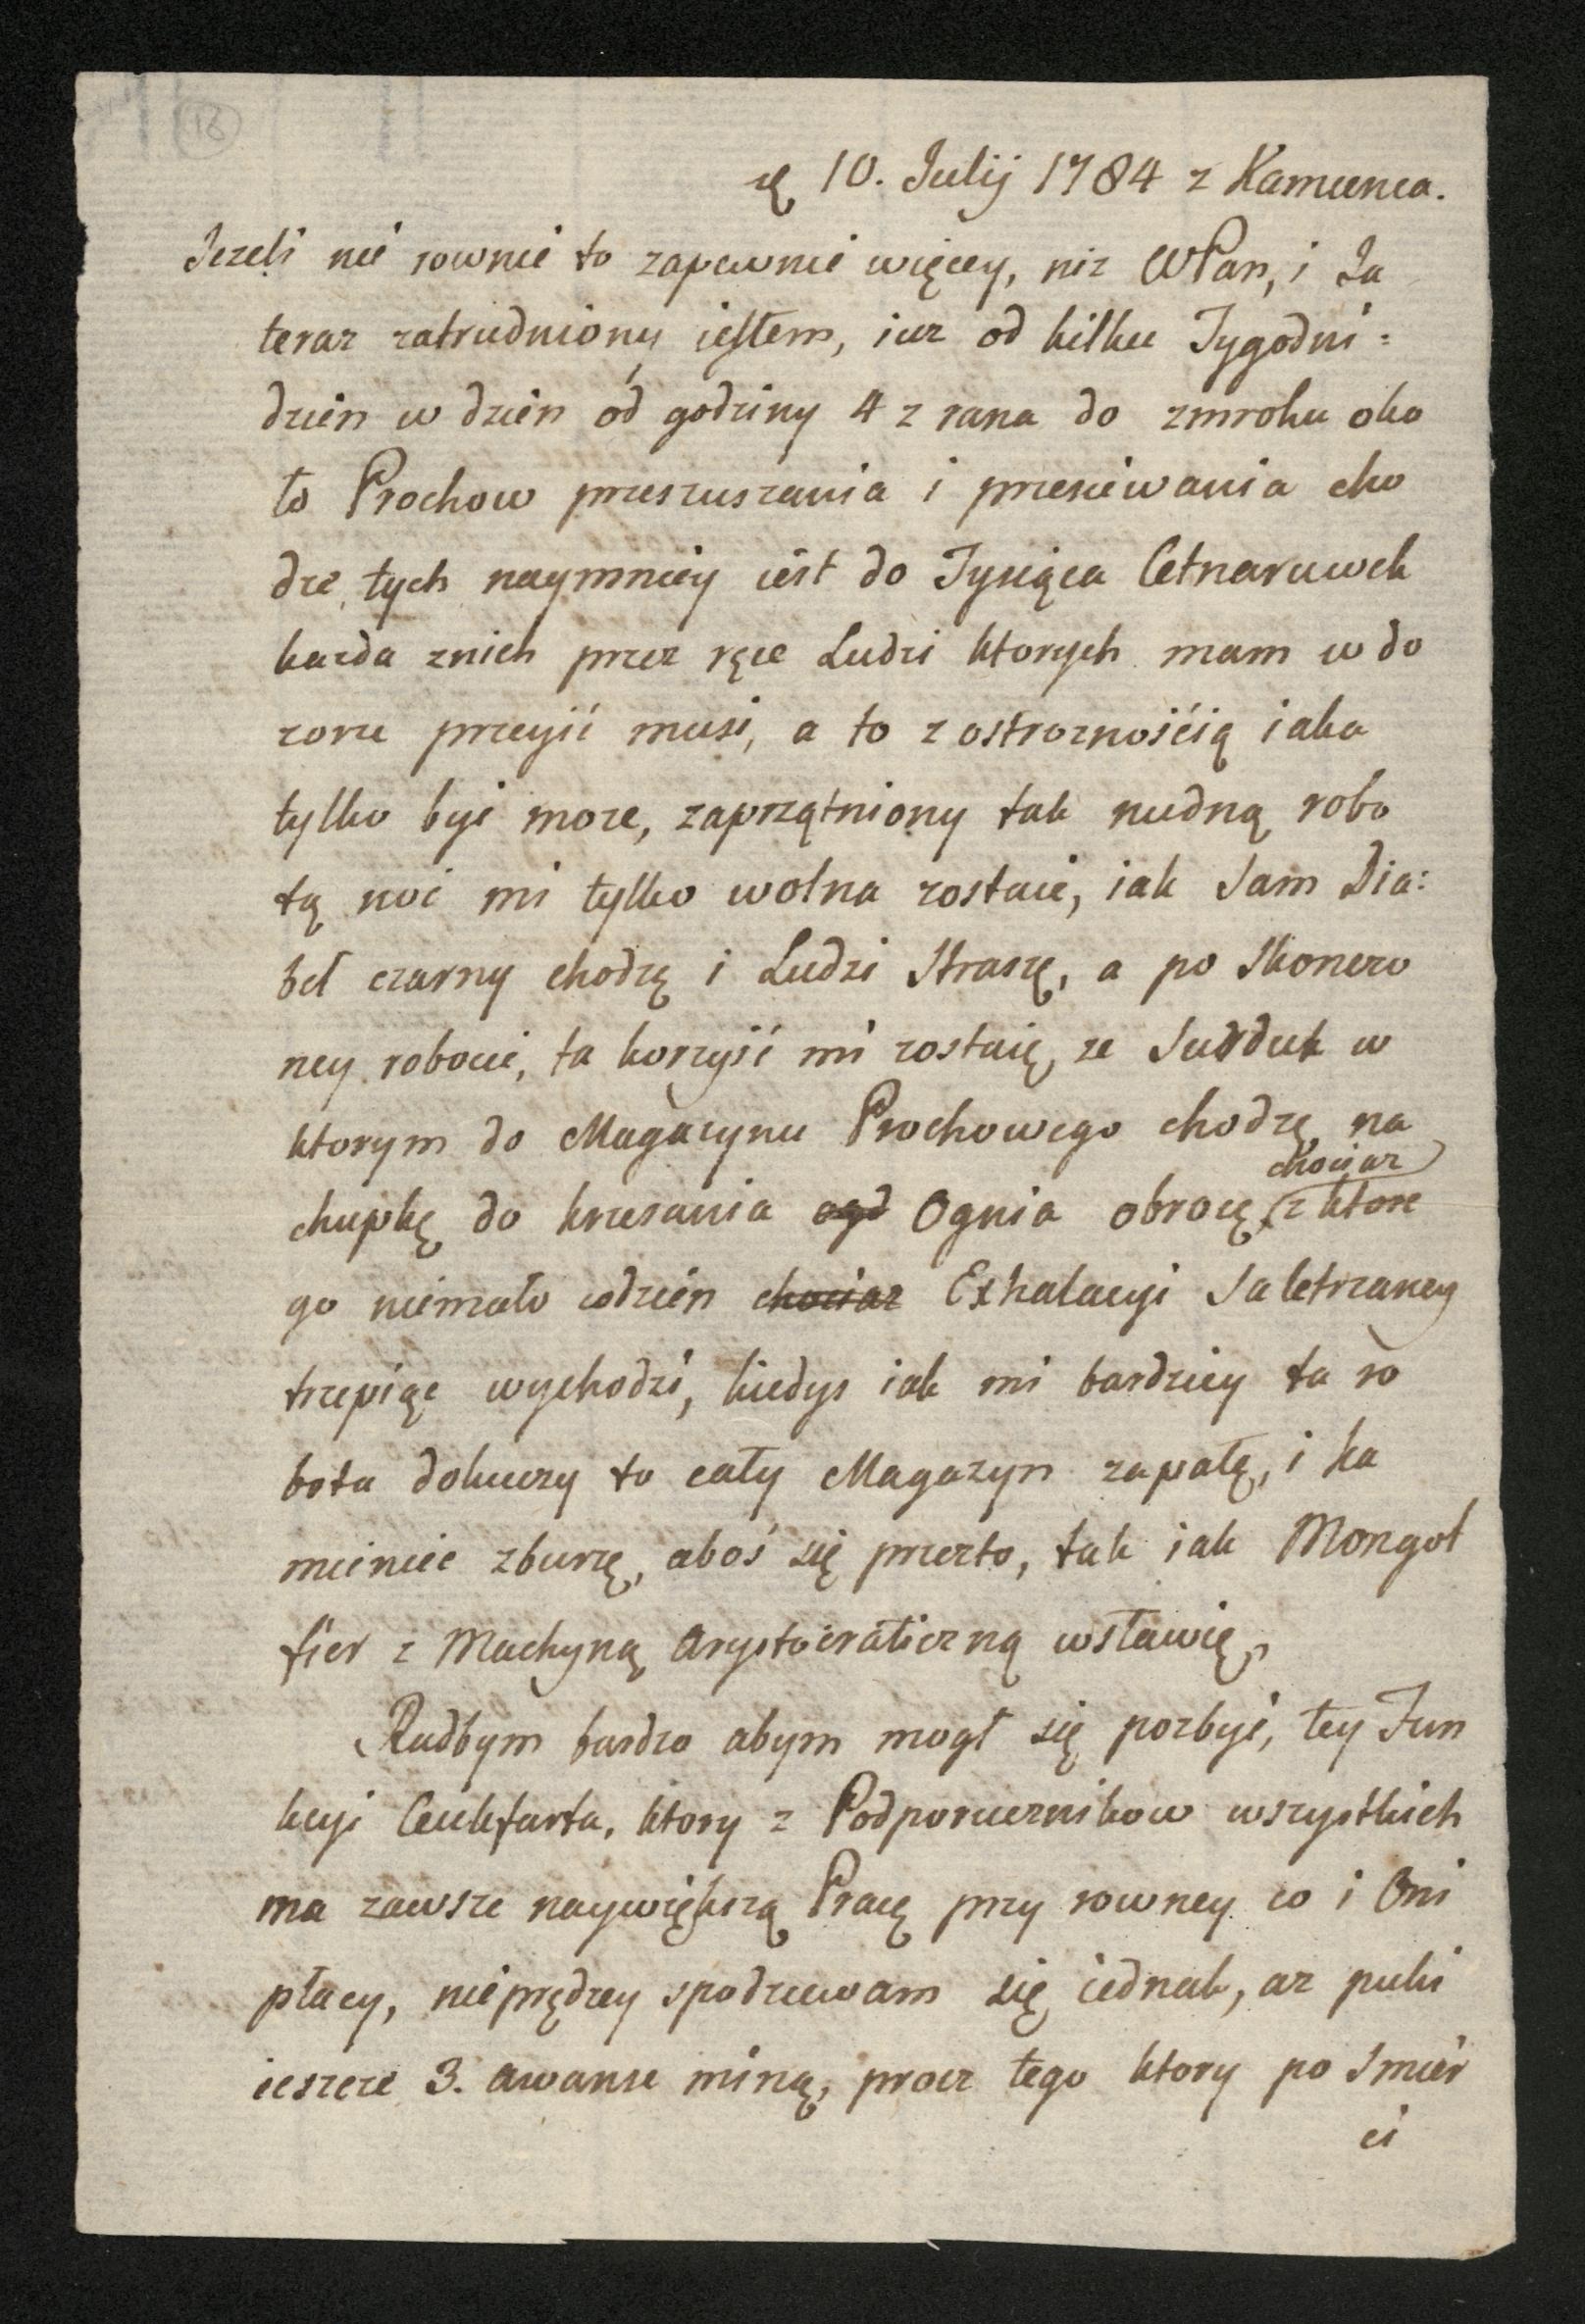 18
10. Julij 1784 z Kamienca.
Jezeli nie rownie to zapewnie więcey, niz WPan, i Ja
teraz zatrudniony iestem, iuz od kilku Tygodni:
dzien w dzien od godziny 4 z rana do zmroku oko
ło Prochow przeszuszania i przesiewania cho
dzę, tych naymniey iest do Tysiąca Cetnaruwek
kazda znich przez ręce Ludzi ktorych mam w do
zorze przeyść musi, a to z ostroznościcią iaka
tylko być moze, zaprzątniony tak nudną robo
tą noc mi tylko wolna zostaie, iak sam Dia:
beł czarny chodzę i Ludzi straszę, a po skonczo
ney robocie, ta korzyść mi zostaię, ze Surduk w
ktorym do Magazynu Prochowego chodzę na
chociaz
chupkę do krzesania ogd Ognia obrocę, z ktore
go niemało codzień chociaz Exhalacyi Saletrzaney
trzepiąc wychodzi, kiedys iak mi bardziey ta ro
bota dokuczy to cały Magazyn zapalę, i Ka
mieniec zburzę, aboś się przezto, tak iak Mongol
fier z Machyną Arystocratiezną wsławię,
Radbym bardzo abym mogł się pozbyć, tey Fun
kcyi Ceukfarta, ktory z Podporucznikow wszystkich
ma zawsze naywiększą Pracę przy rowney co i Oni
płacy, nieprędzey spodziewam się iednak, az puki
ieszcze 3. Awanse miną, procz tego ktory po Smier
ci